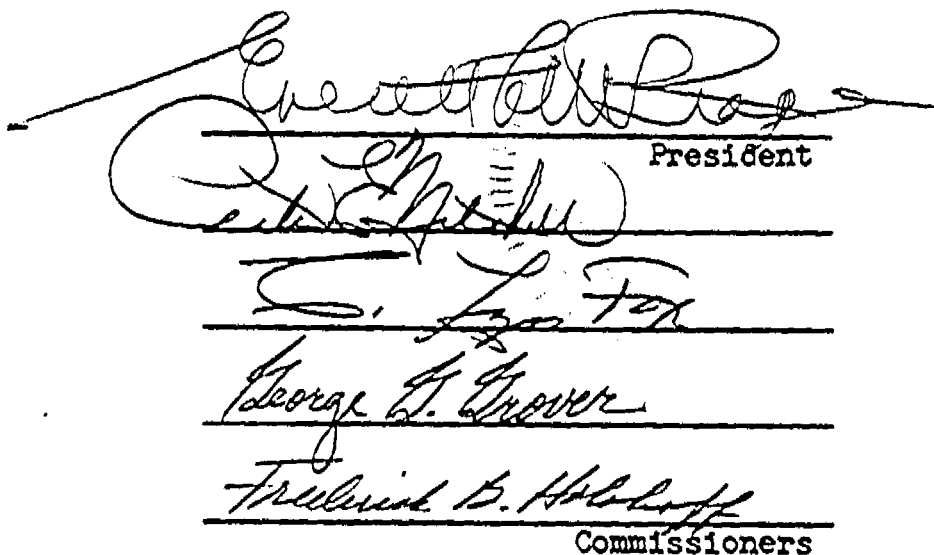 Everett
President
Peter E. Mitchell
C. Lyn Fox
George G. Grover
Frederick B. Holoboff
Commissioners